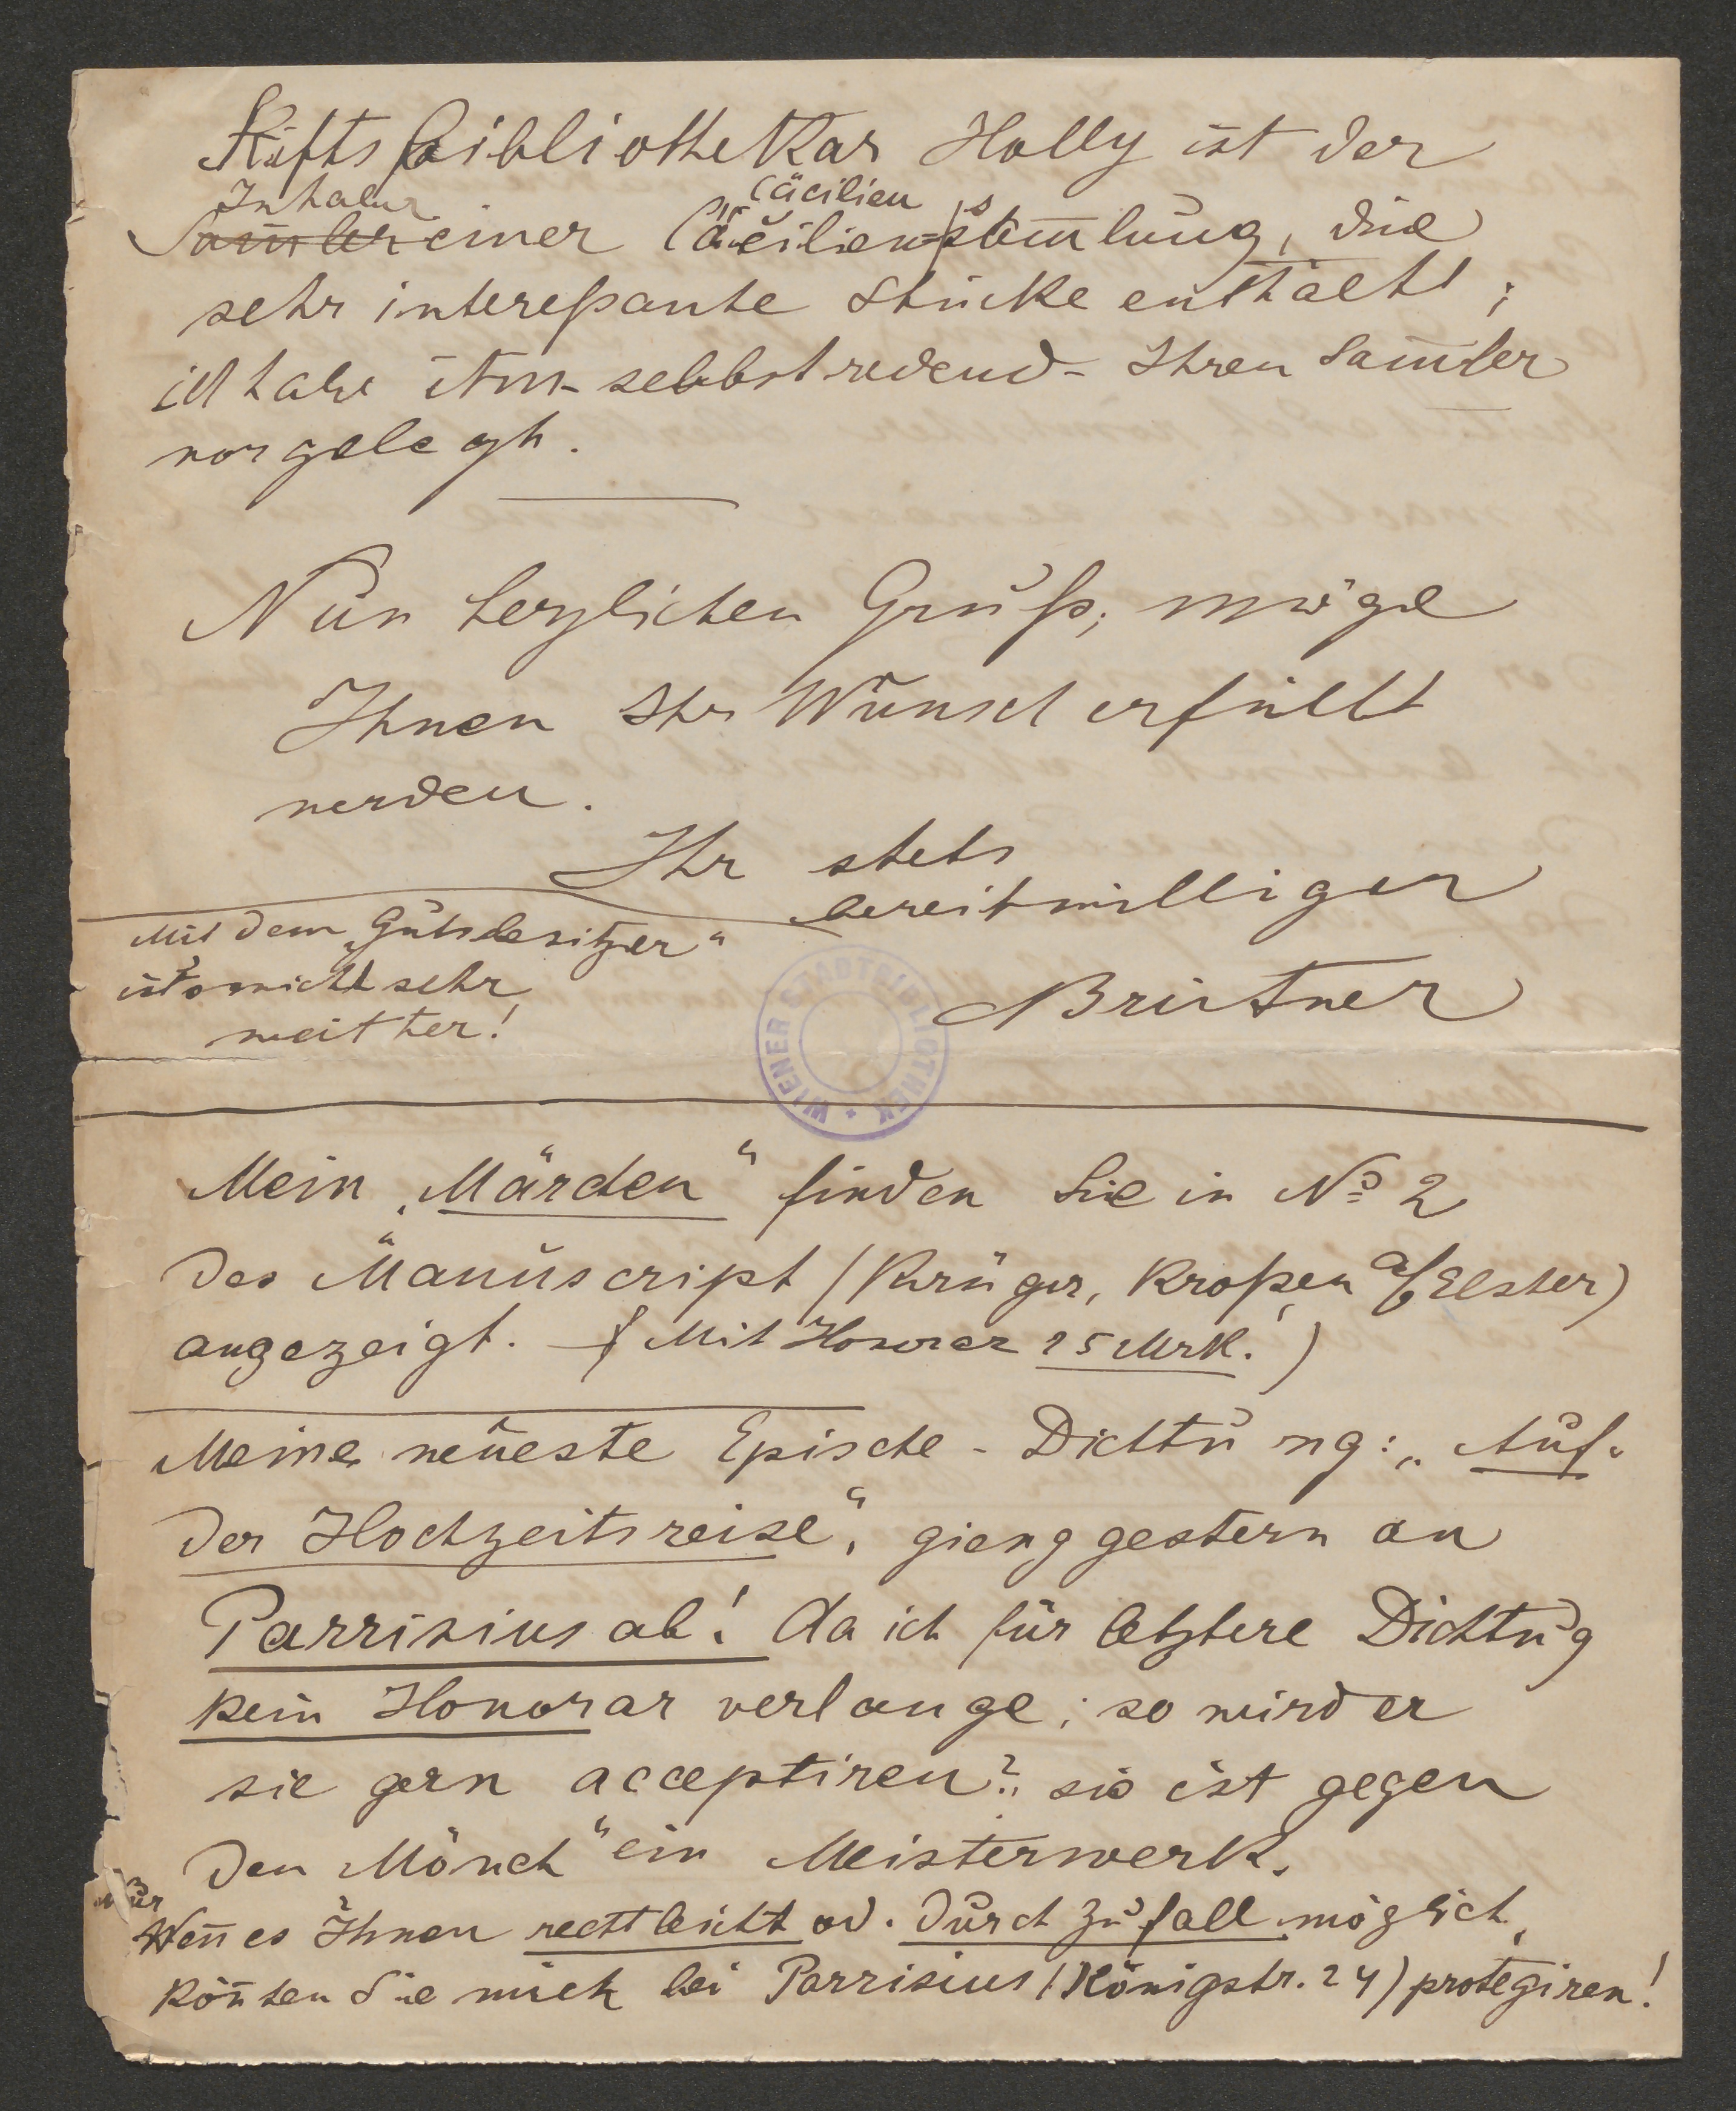 Stiftsbibliothekar Holly ist der
Inhaber Cäcilien
Sam̅ler einer Cäcilien=sam̅lung, die
sehr intereßante Stücke enthaelt;
ich habe ihm selbstredend Ihren Sam̅ler
vorgelegt.
Nun herzlichen Gruß; möge
Ihnen Ihr Wunsch erfüllt
werden.
Ihr stets
bereitwilliger
Mit dem „Gutsbesitzer“
ists nicht sehr
weit her!
WIENER STADTBIBLIOTHEK
Mein „Märchen“ finden Sie in No 2
des Manuscript (Krüger, Kroßen a/Elster)
angezeigt. (Mit Honorar 15 Mrk.!)
Meine neueste Epische-Dichtung: „Auf
der Hochzeitsreise“, gieng gestern an
Parrisius ab! Da ich für letztere Dichtug
kein Honorar verlange; so wird er
sie gern acceptiren? sie ist gegen
„den Mönch“ ein Meisterwerk.
Nur
Wen̅ es Ihnen recht leicht od. durch Zufall möglich,
kön̅ten Sie mich bei Parrisius (Königstr. 24) protegiren!